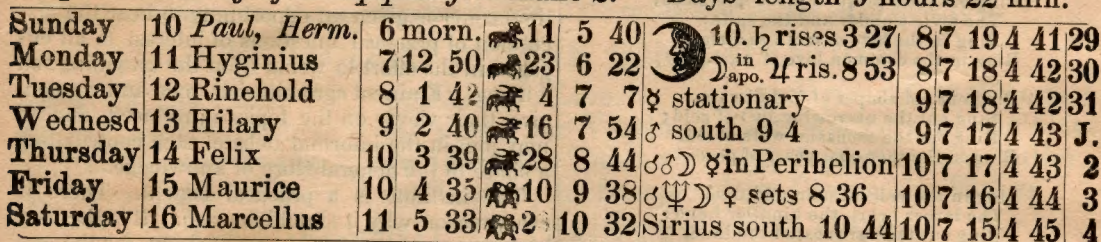 Days' length 9 hours 22 min.
Sunday 10 Paul, Herm. 6 morn. 11 5 40 10. ♄ rises 3 27 8 7 19 4 41 29
Monday 11 Hyginius 7 12 50 23 6 22 ☽ in apo. ♃ ris. 8 53 8 7 18 4 42 30
Tuesday 12 Rinehold 8 1 42 4 7 7 ☿ stationary 9 7 18 4 42 31
Wednesd 13 Hilary 9 2 40 16 7 54 ♂ south 9 4 9 7 17 4 43 J.
Thursday 14 Felix 10 3 39 28 8 44 ☌♂☽ ☿ in Perihelion 10 7 17 4 43 2
Friday 15 Maurice 10 4 35 10 9 38 ☌♆☽ ♀ sets 8 36 10 7 16 4 44 3
Saturday 16 Marcellus 11 5 33 10 32 Sirius south 10 44 10 7 15 4 45 4